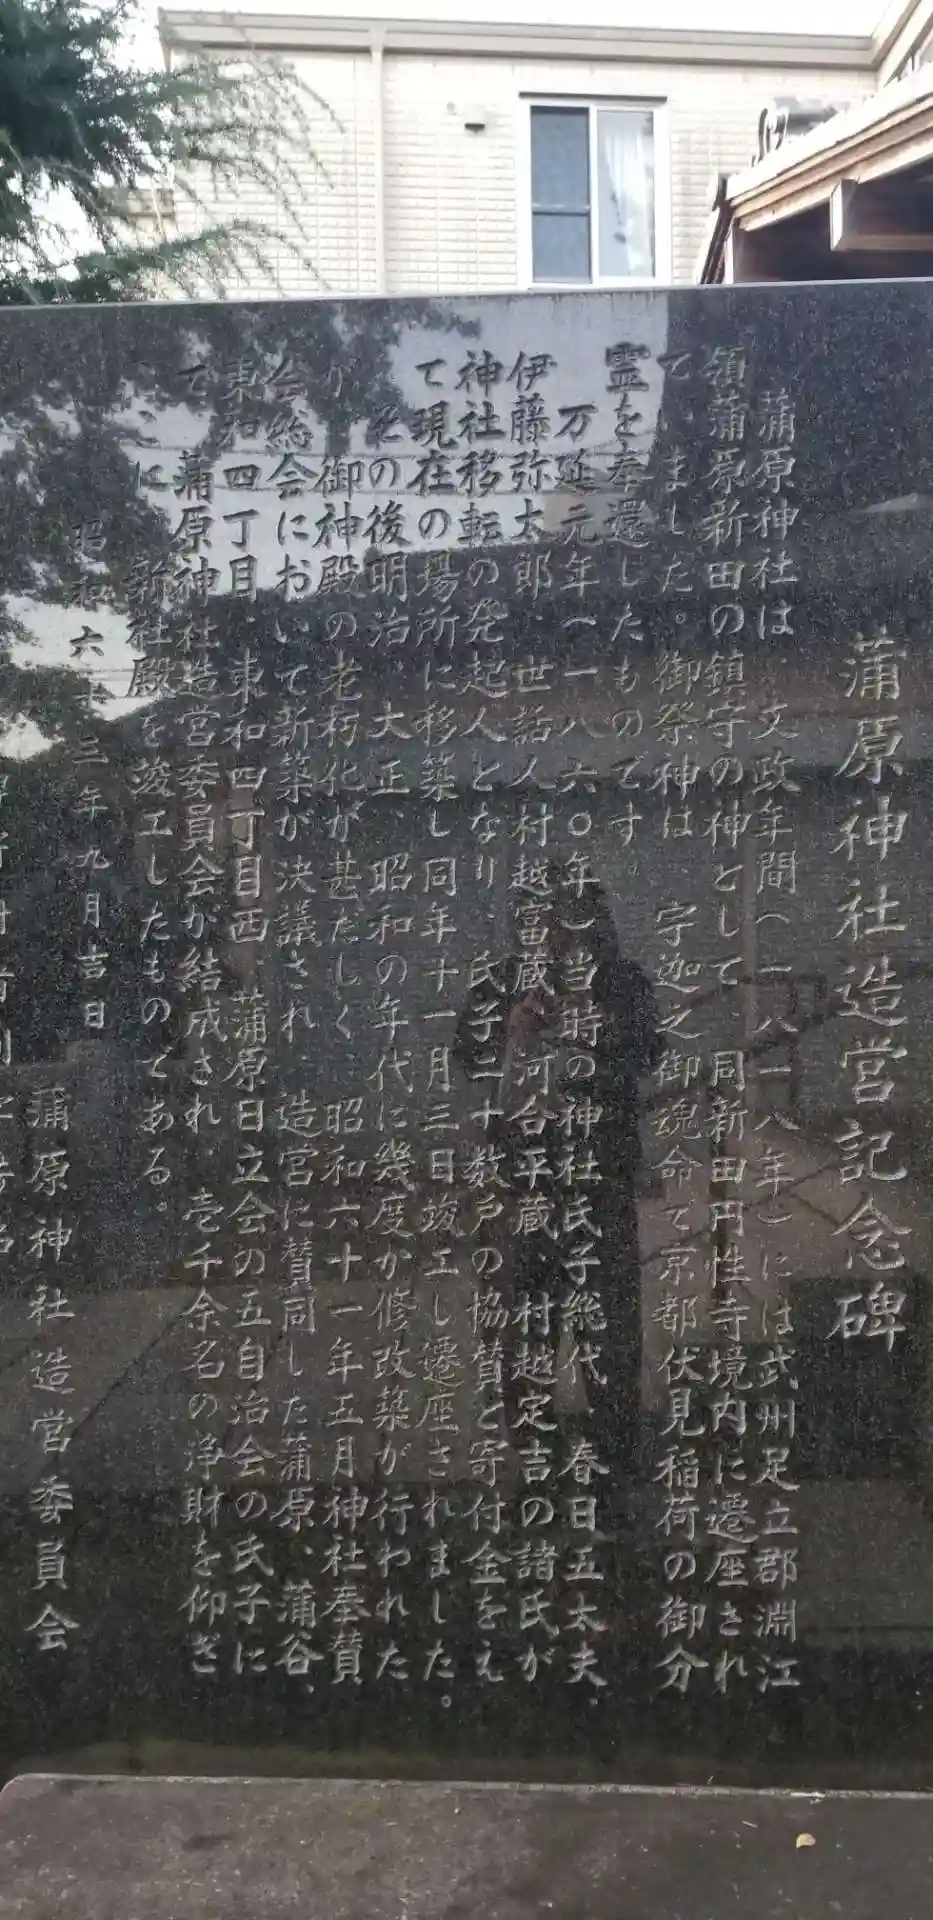 蒲原神社造営記念碑
蒲原神社は、文政年間(一八一八年)には武州足立郡淵江
領蒲原新田の鎮守の神として、同新田円性寺境内に遷座され
てました。御祭神は、宇迦之御魂命で京都伏見稲荷の御分
霊を奉還したものです。
万延元年(一八六〇年)当時の神社氏子総代、春日五太夫、
伊藤弥太郎、世話人村越富蔵、河合平蔵、村越定吉の諸氏が
神社移転の発起人となり、氏子二十数戸の協賛と寄付金をえ
て現在の場所に移築し同年十一月三日竣工し遷座されました。
その後明治、大正、昭和の年代に幾度か修改築が行われた
が、御神殿の老朽化が甚だしく、昭和六十一年五月神社奉賛
会総会において新築が決議され、造営に賛同した蒲原、蒲谷、
東和四丁目、東和四丁目西、蒲原日立会の五自治会の氏子に
て、蒲原神社造営委員会が結成され、壱千余名の浄財を仰ぎ
ここに、新社殿を竣工したものである。
昭和六十三年九月吉日
蒲原神社造営委員会